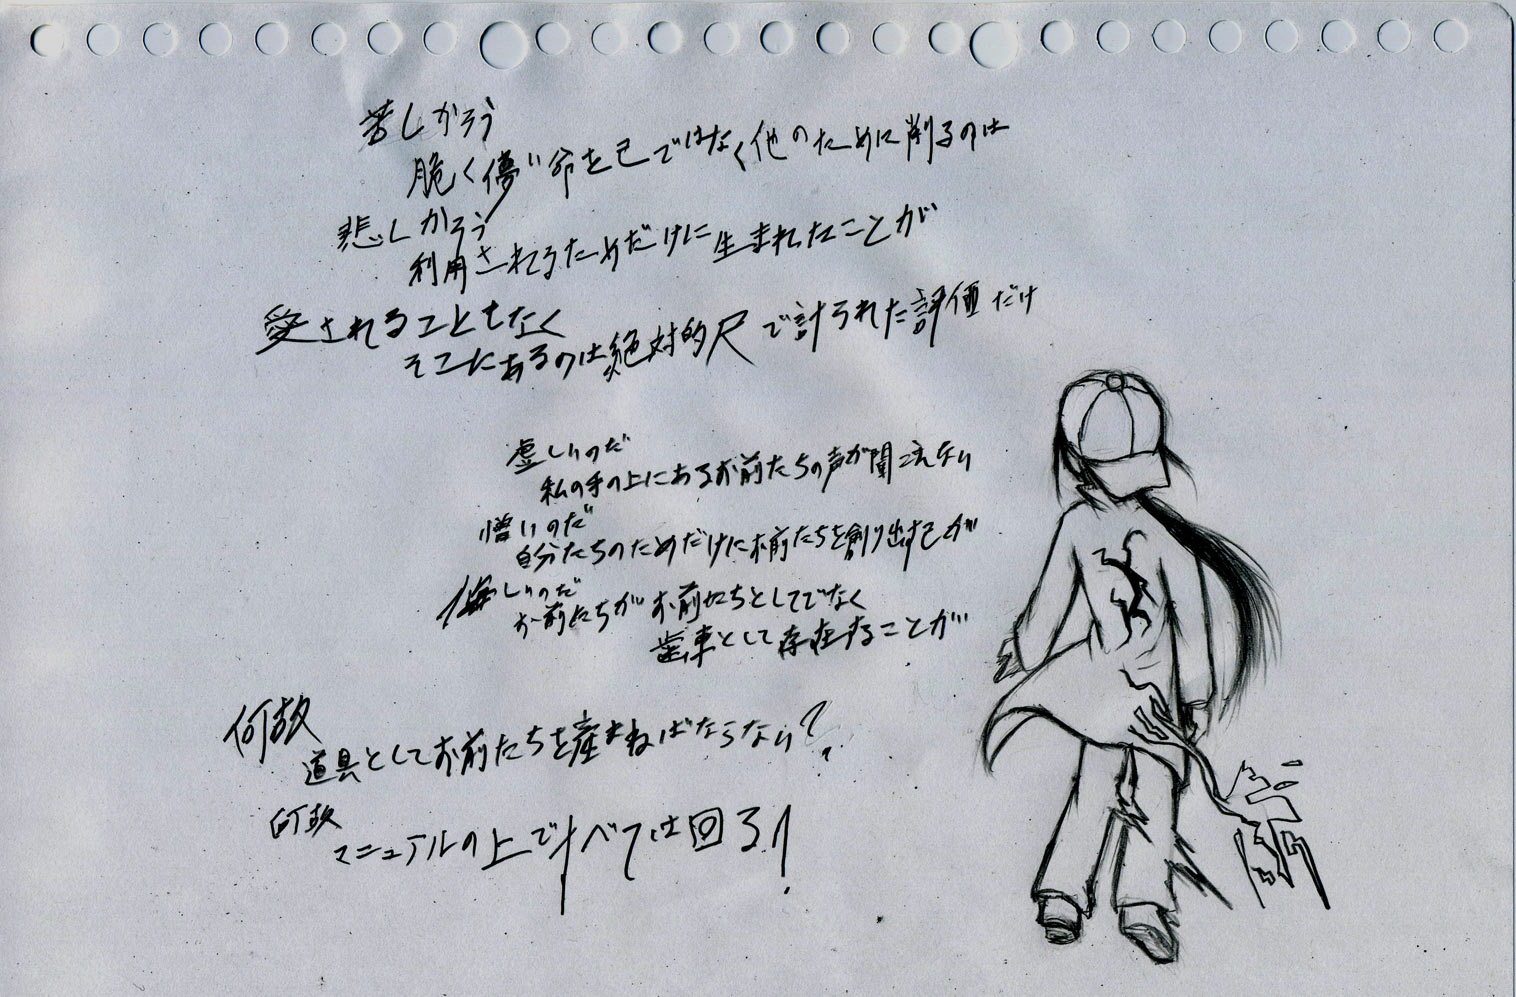 苦しかろう
脆く儚い命を己ではなく他のために削るのは
悲しかろう
利用されるためだけに生まれたことが
愛されることもなく
そこにあるのは絶対的尺で計られた評価だけ
虚しいのだ
私の手の上にあるお前たちの声が聞こえない
憎いのだ
自分たちのためだけにお前たちを創り出す己が
悔しいのだ
お前たちがお前たちとしてでなく
歯車として存在することが
何故
道具としてお前たちを産まねばならない?
何故
マニュアルの上ですべては回る!